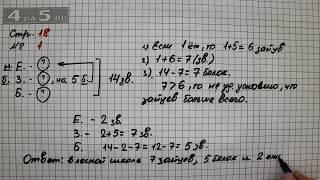 4DA5.RU
Стр. 18
№ 1
Н. Е. - ?
З. - ?, на 5 б.
Б. - ?
14 зв.
1) Если 1 еж, то 1+5=6 зайцев
2) 1+6=7 (зв.)
3) 14-7=7 белок.
7>6, то не уд. условию, что
зайцев больше всего.
Е. - 2 зв.
З. - 2+5=7 зв.
Б. 14-2-7=12-7=5 зв.
Ответ: в лесной школе 7 зайцев, 5 белок и 2